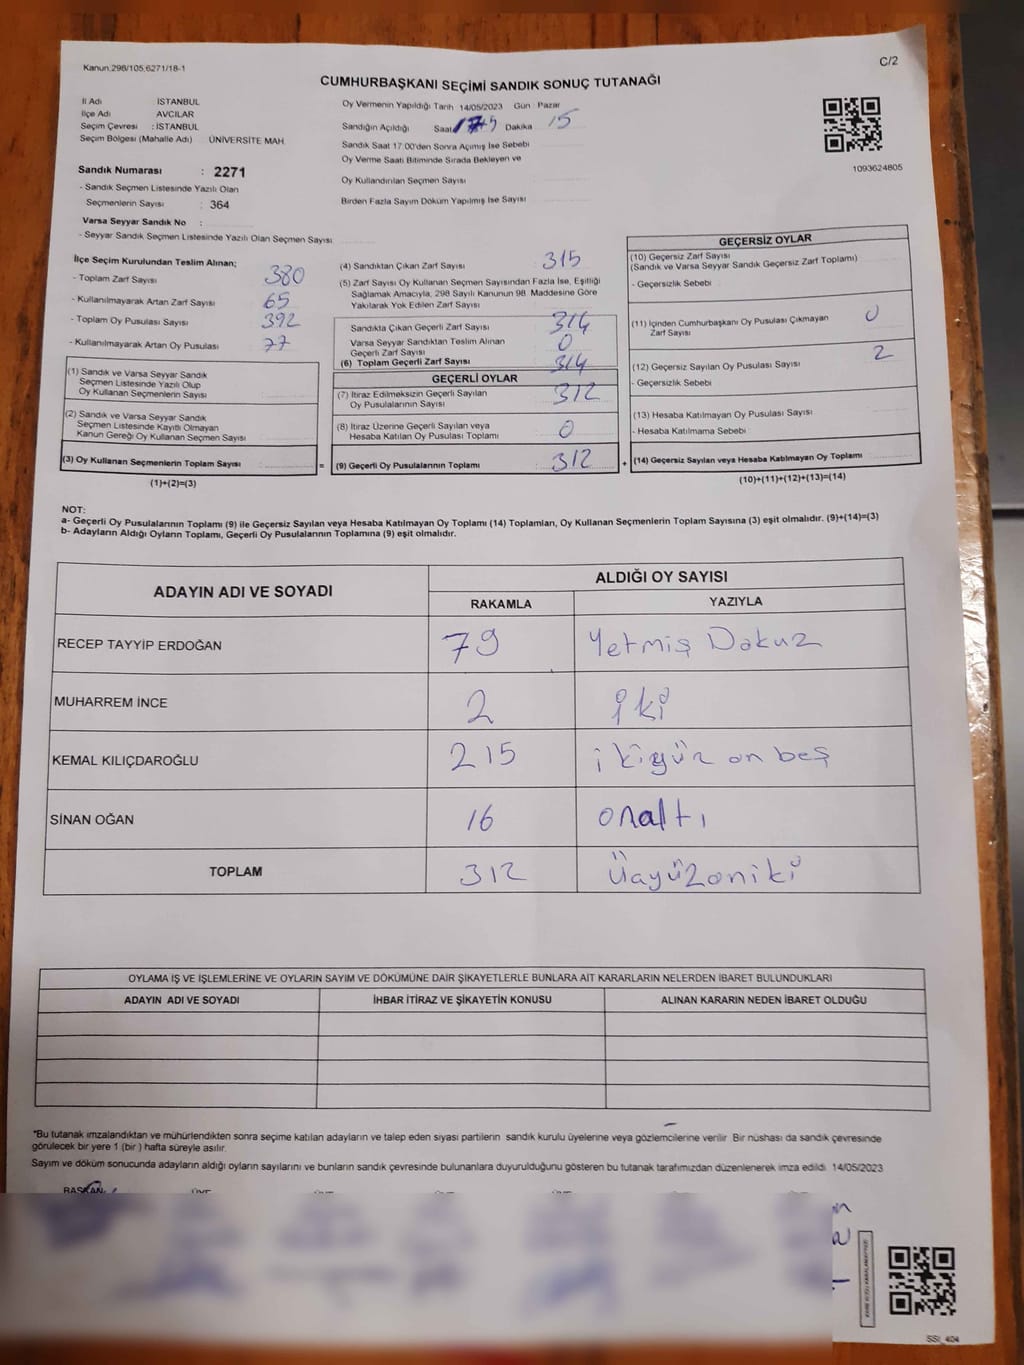 Kanun:298/105,6271/18-1
C/2
CUMHURBAŞKANI SEÇİMİ SANDIK SONUÇ TUTANAĞI
İl Adı İSTANBUL
İlçe Adı AVCILAR
Seçim Çevresi : İSTANBUL
Seçim Bölgesi (Mahalle Adı) ÜNİVERSİTE MAH.
Oy Vermenin Yapıldığı Tarih 14/05/2023 Gün : Pazar
Sandığın Açıldığı Saat Dakika 15
Sandık Saat 17:00'den Sonra Açılmış İse Sebebi
Oy Verme Saati Bitiminde Sırada Bekleyen ve
Oy Kullandırılan Seçmen Sayısı :
Birden Fazla Sayım Döküm Yapılmış İse Sayısı
1093624805
Sandık Numarası : 2271
- Sandık Seçmen Listesinde Yazılı Olan
Seçmenlerin Sayısı : 364
Varsa Seyyar Sandık No :
- Seyyar Sandık Seçmen Listesinde Yazılı Olan Seçmen Sayısı
İlçe Seçim Kurulundan Teslim Alınan;
- Toplam Zarf Sayısı 380
- Kullanılmayarak Artan Zarf Sayısı 65
- Toplam Oy Pusulası Sayısı 392
- Kullanılmayarak Artan Oy Pusulası 77
(1) Sandık ve Varsa Seyyar Sandık
Seçmen Listesinde Yazılı Olup
Oy Kullanan Seçmenlerin Sayısı :
(2) Sandık ve Varsa Seyyar Sandık
Seçmen Listesinde Kayıtlı Olmayan
Kanun Gereği Oy Kullanan Seçmen Sayısı
(3) Oy Kullanan Seçmenlerin Toplam Sayısı :
(1)+(2)=(3)
(4) Sandıktan Çıkan Zarf Sayısı 315
(5) Zarf Sayısı Oy Kullanan Seçmen Sayısından Fazla İse, Eşitliği
Sağlamak Amacıyla, 298 Sayılı Kanunun 98. Maddesine Göre
Yakılarak Yok Edilen Zarf Sayısı
Sandıkta Çıkan Geçerli Zarf Sayısı 314
Varsa Seyyar Sandıktan Teslim Alınan
Geçerli Zarf Sayısı 0
(6) Toplam Geçerli Zarf Sayısı 314
GEÇERLİ OYLAR
(7) İtiraz Edilmeksizin Geçerli Sayılan
Oy Pusulalarının Sayısı 312
(8) İtiraz Üzerine Geçerli Sayılan veya
Hesaba Katılan Oy Pusulası Toplamı 0
= (9) Geçerli Oy Pusulalarının Toplamı : 312
GEÇERSİZ OYLAR
(10) Geçersiz Zarf Sayısı
(Sandık ve Varsa Seyyar Sandık Geçersiz Zarf Toplamı)
- Geçersizlik Sebebi :
(11) İçinden Cumhurbaşkanı Oy Pusulası Çıkmayan
Zarf Sayısı 0
(12) Geçersiz Sayılan Oy Pusulası Sayısı 2
- Geçersizlik Sebebi
(13) Hesaba Katılmayan Oy Pusulası Sayısı
- Hesaba Katılmama Sebebi :
+ (14) Geçersiz Sayılan veya Hesaba Katılmayan Oy Toplamı
(10)+(11)+(12)+(13)=(14)
NOT:
a- Geçerli Oy Pusulalarının Toplamı (9) ile Geçersiz Sayılan veya Hesaba Katılmayan Oy Toplamı (14) Toplamları, Oy Kullanan Seçmenlerin Toplam Sayısına (3) eşit olmalıdır. (9)+(14)=(3)
b- Adayların Aldığı Oyların Toplamı, Geçerli Oy Pusulalarının Toplamına (9) eşit olmalıdır.
ADAYIN ADI VE SOYADI ALDIĞI OY SAYISI
RAKAMLA YAZIYLA
RECEP TAYYİP ERDOĞAN 79 Yetmiş Dokuz
MUHARREM İNCE 2 iki
KEMAL KILIÇDAROĞLU 215 ikiyüz on beş
SİNAN OĞAN 16 onaltı
TOPLAM 312 Üçyüzoniki
OYLAMA İŞ VE İŞLEMLERİNE VE OYLARIN SAYIM VE DÖKÜMÜNE DAİR ŞİKAYETLERLE BUNLARA AİT KARARLARIN NELERDEN İBARET BULUNDUKLARI
ADAYIN ADI VE SOYADI İHBAR İTİRAZ VE ŞİKAYETİN KONUSU ALINAN KARARIN NEDEN İBARET OLDUĞU
*Bu tutanak imzalandıktan ve mühürlendikten sonra seçime katılan adayların ve talep eden siyasi partilerin sandık kurulu üyelerine veya gözlemcilerine verilir. Bir nüshası da sandık çevresinde
görülecek bir yere 1 (bir) hafta süreyle asılır.
Sayım ve döküm sonucunda adayların aldığı oyların sayılarını ve bunların sandık çevresinde bulunanlara duyurulduğunu gösteren bu tutanak tarafımızdan düzenlenerek imza edildi. 14/05/2023
BAŞKAN
SSI_404